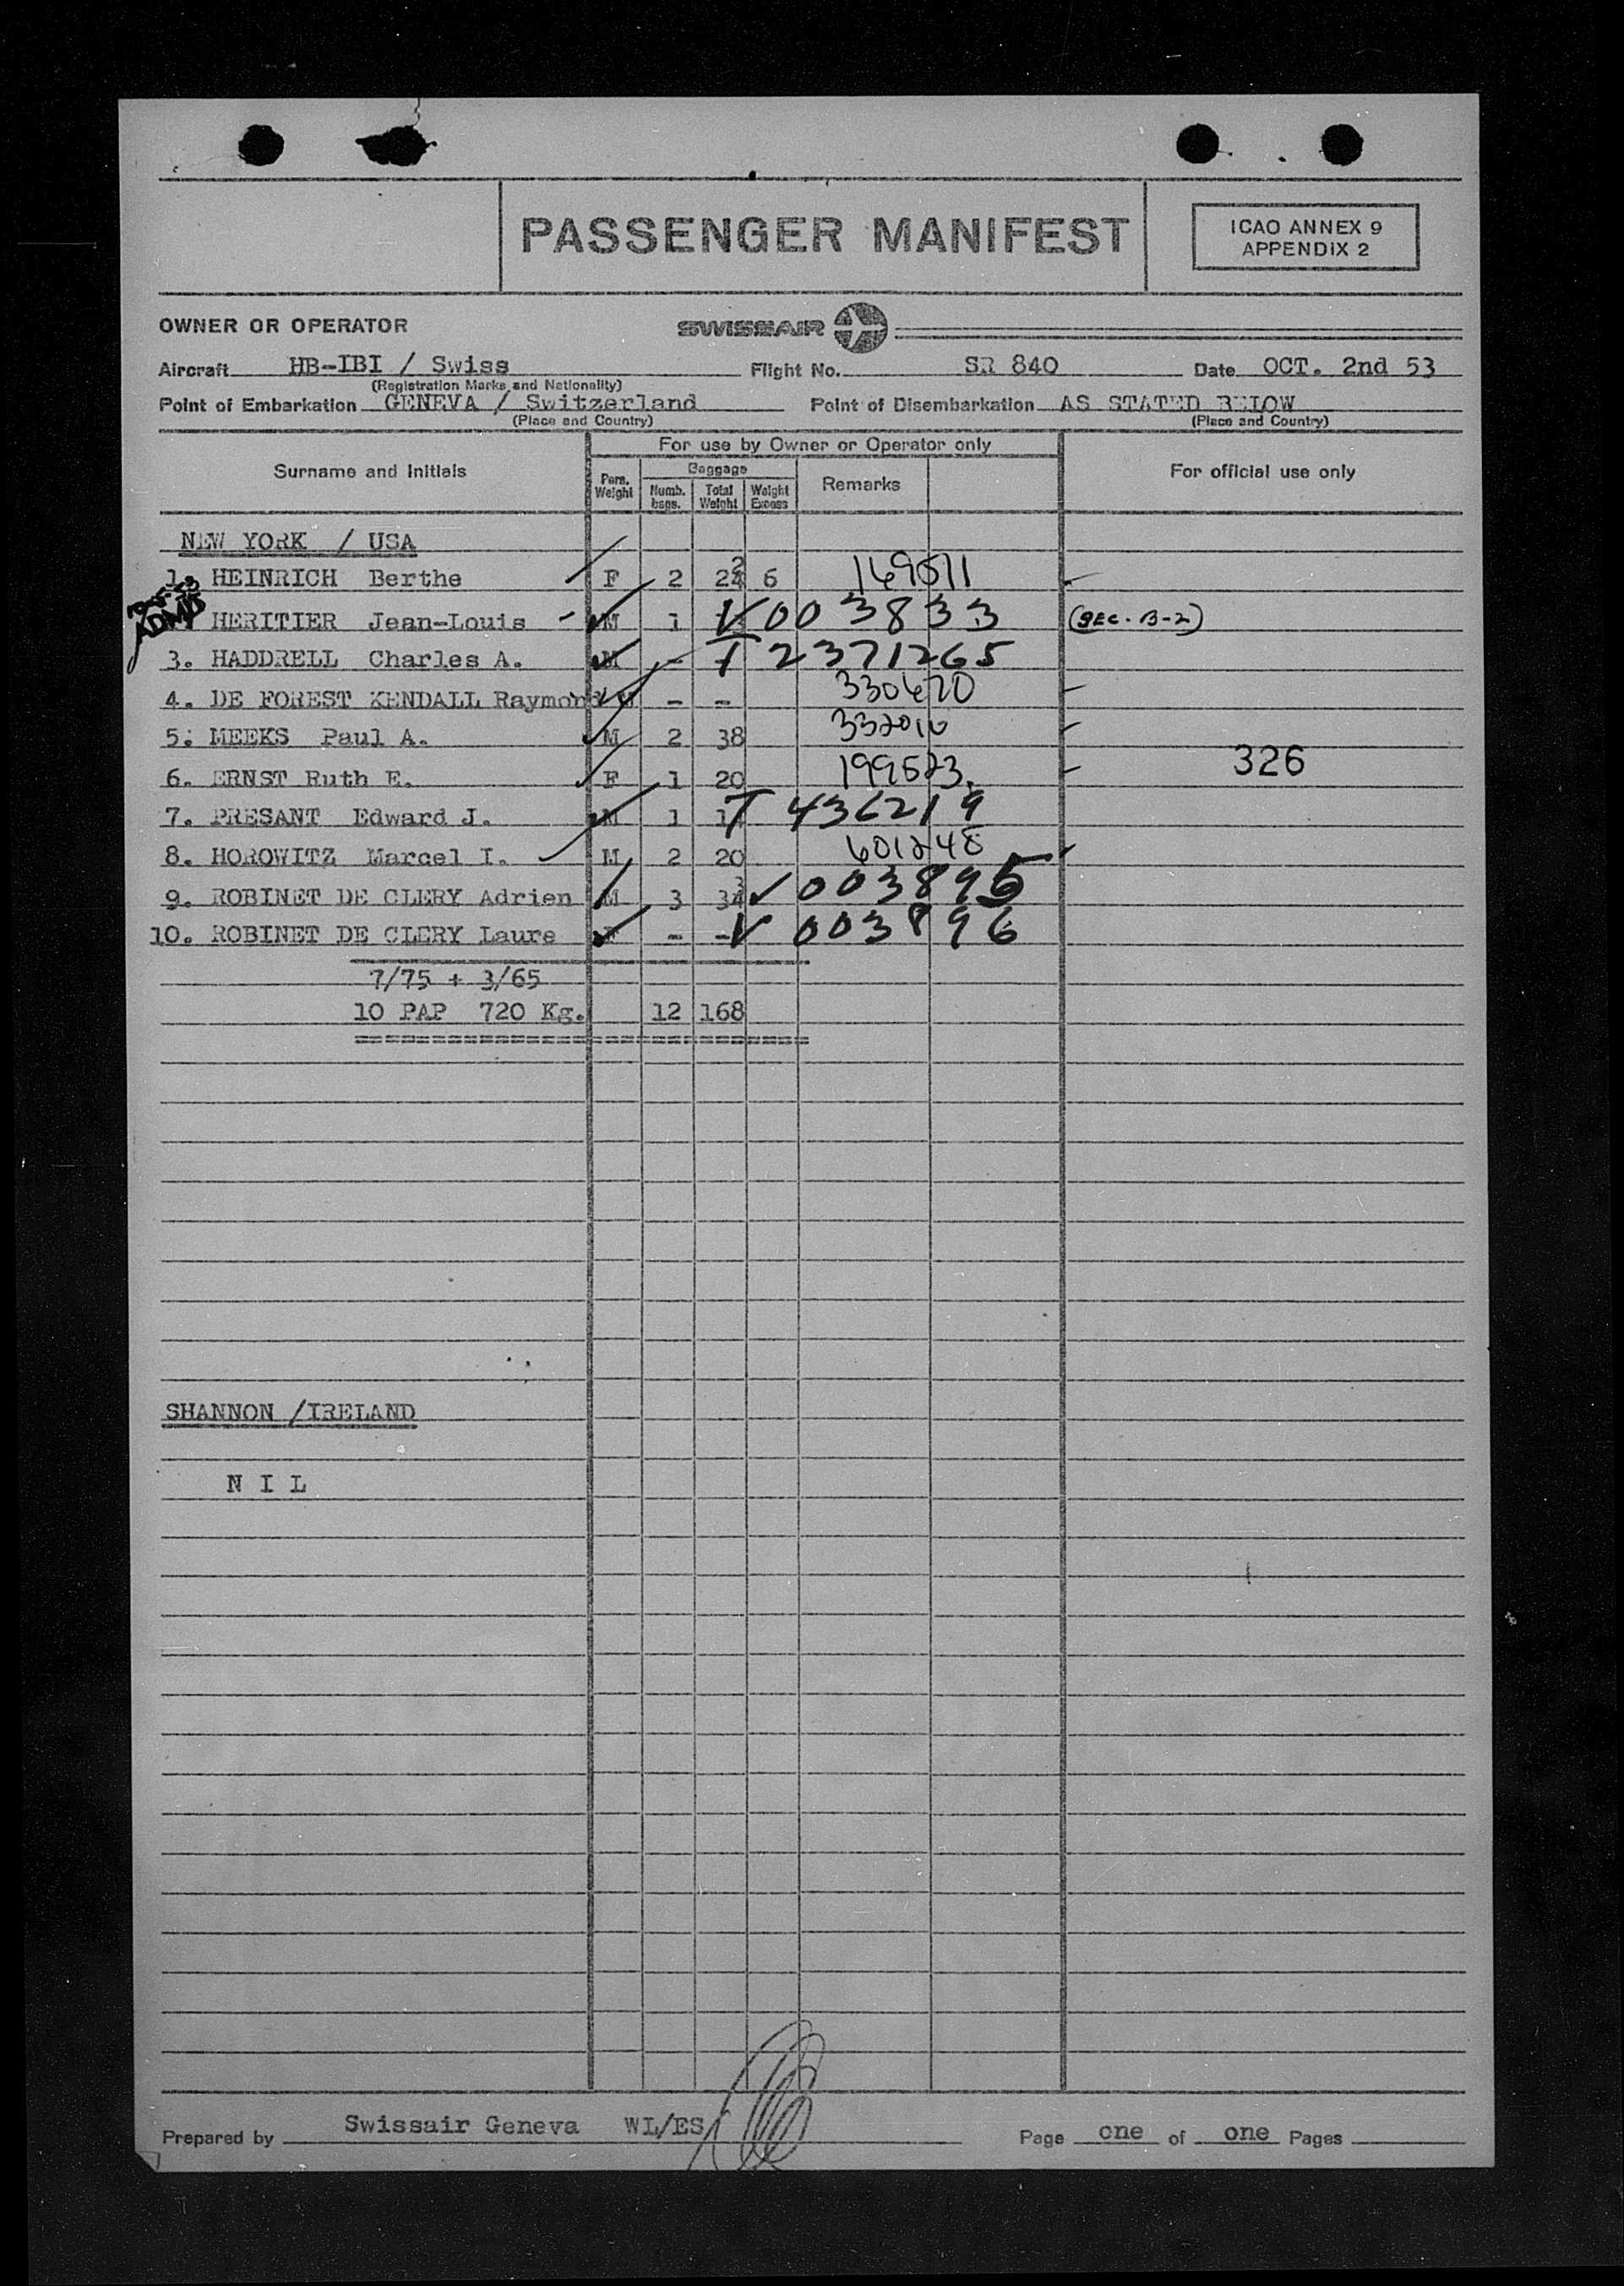 PASSENGER MANIFEST
ICAO ANNEX 9
APPENDIX 2
OWNER OR OPERATOR SWISSAIR
Aircraft HB-IBI / Swiss Flight No. SR 840 Date OCT. 2nd 53
(Registration Marks and Nationality)
Point of Embarkation GENEVA / Switzerland Point of Disembarkation AS STATED BELOW
(Place and Country) (Place and Country)
For use by Owner or Operator only
Surname and Initials Pers. Weight Baggage Numb. bags. Total Weight Weight Excess Remarks For official use only
NEW YORK / USA
1. HEINRICH Berthe F 2 6 169511
ADMB
HERITIER Jean-Louis M 1 V 003833 (SEC. B-2)
3. HADDRELL Charles A. M - T 2371265
4. DE FOREST KENDALL Raymond M - - 330670
5. MEEKS Paul A. M 2 38 332010
6. ERNST Ruth E. F 1 20 199523 326
7. PRESANT Edward J. M 1 T 436219
8. HOROWITZ Marcel I. M 2 20 601248
9. ROBINET DE CLERY Adrien M 3 003895
10. ROBINET DE CLERY Laure F - - V 003896
7/75 + 3/65
10 PAP 720 Kg. 12 168
SHANNON /IRELAND
N I L
Prepared by Swissair Geneva WL/ES Page one of one Pages